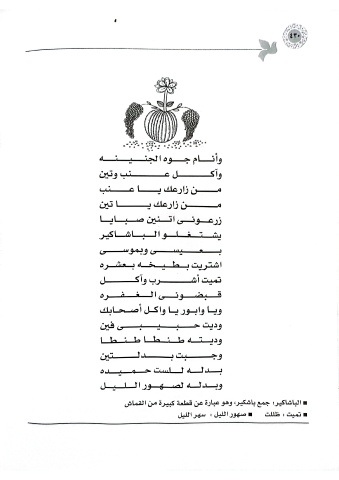 ٤٣٠
وأنام جوه الجنينه
وآكل عنب وتين
من زارعك يا عنب
من زارعك يا تين
زرعونى اتنين صبايا
يشتغلو الباشاكير
بعيسى وبموسى
اشتريت بطيخه بعشره
تميت أشرب وآكل
قبضونى الغفره
ويا وابور يا واكل أصحابك
وديت حبيبى فين
وديته طنطا طنطا
وجبت بدلتين
بدله للست حميده
وبدله لصهور الليل
■ الباشاكير: جمع باشكير، وهو عبارة عن قطعة كبيرة من القماش
■ تميت: ظللت ■ صهور الليل: سهر الليل